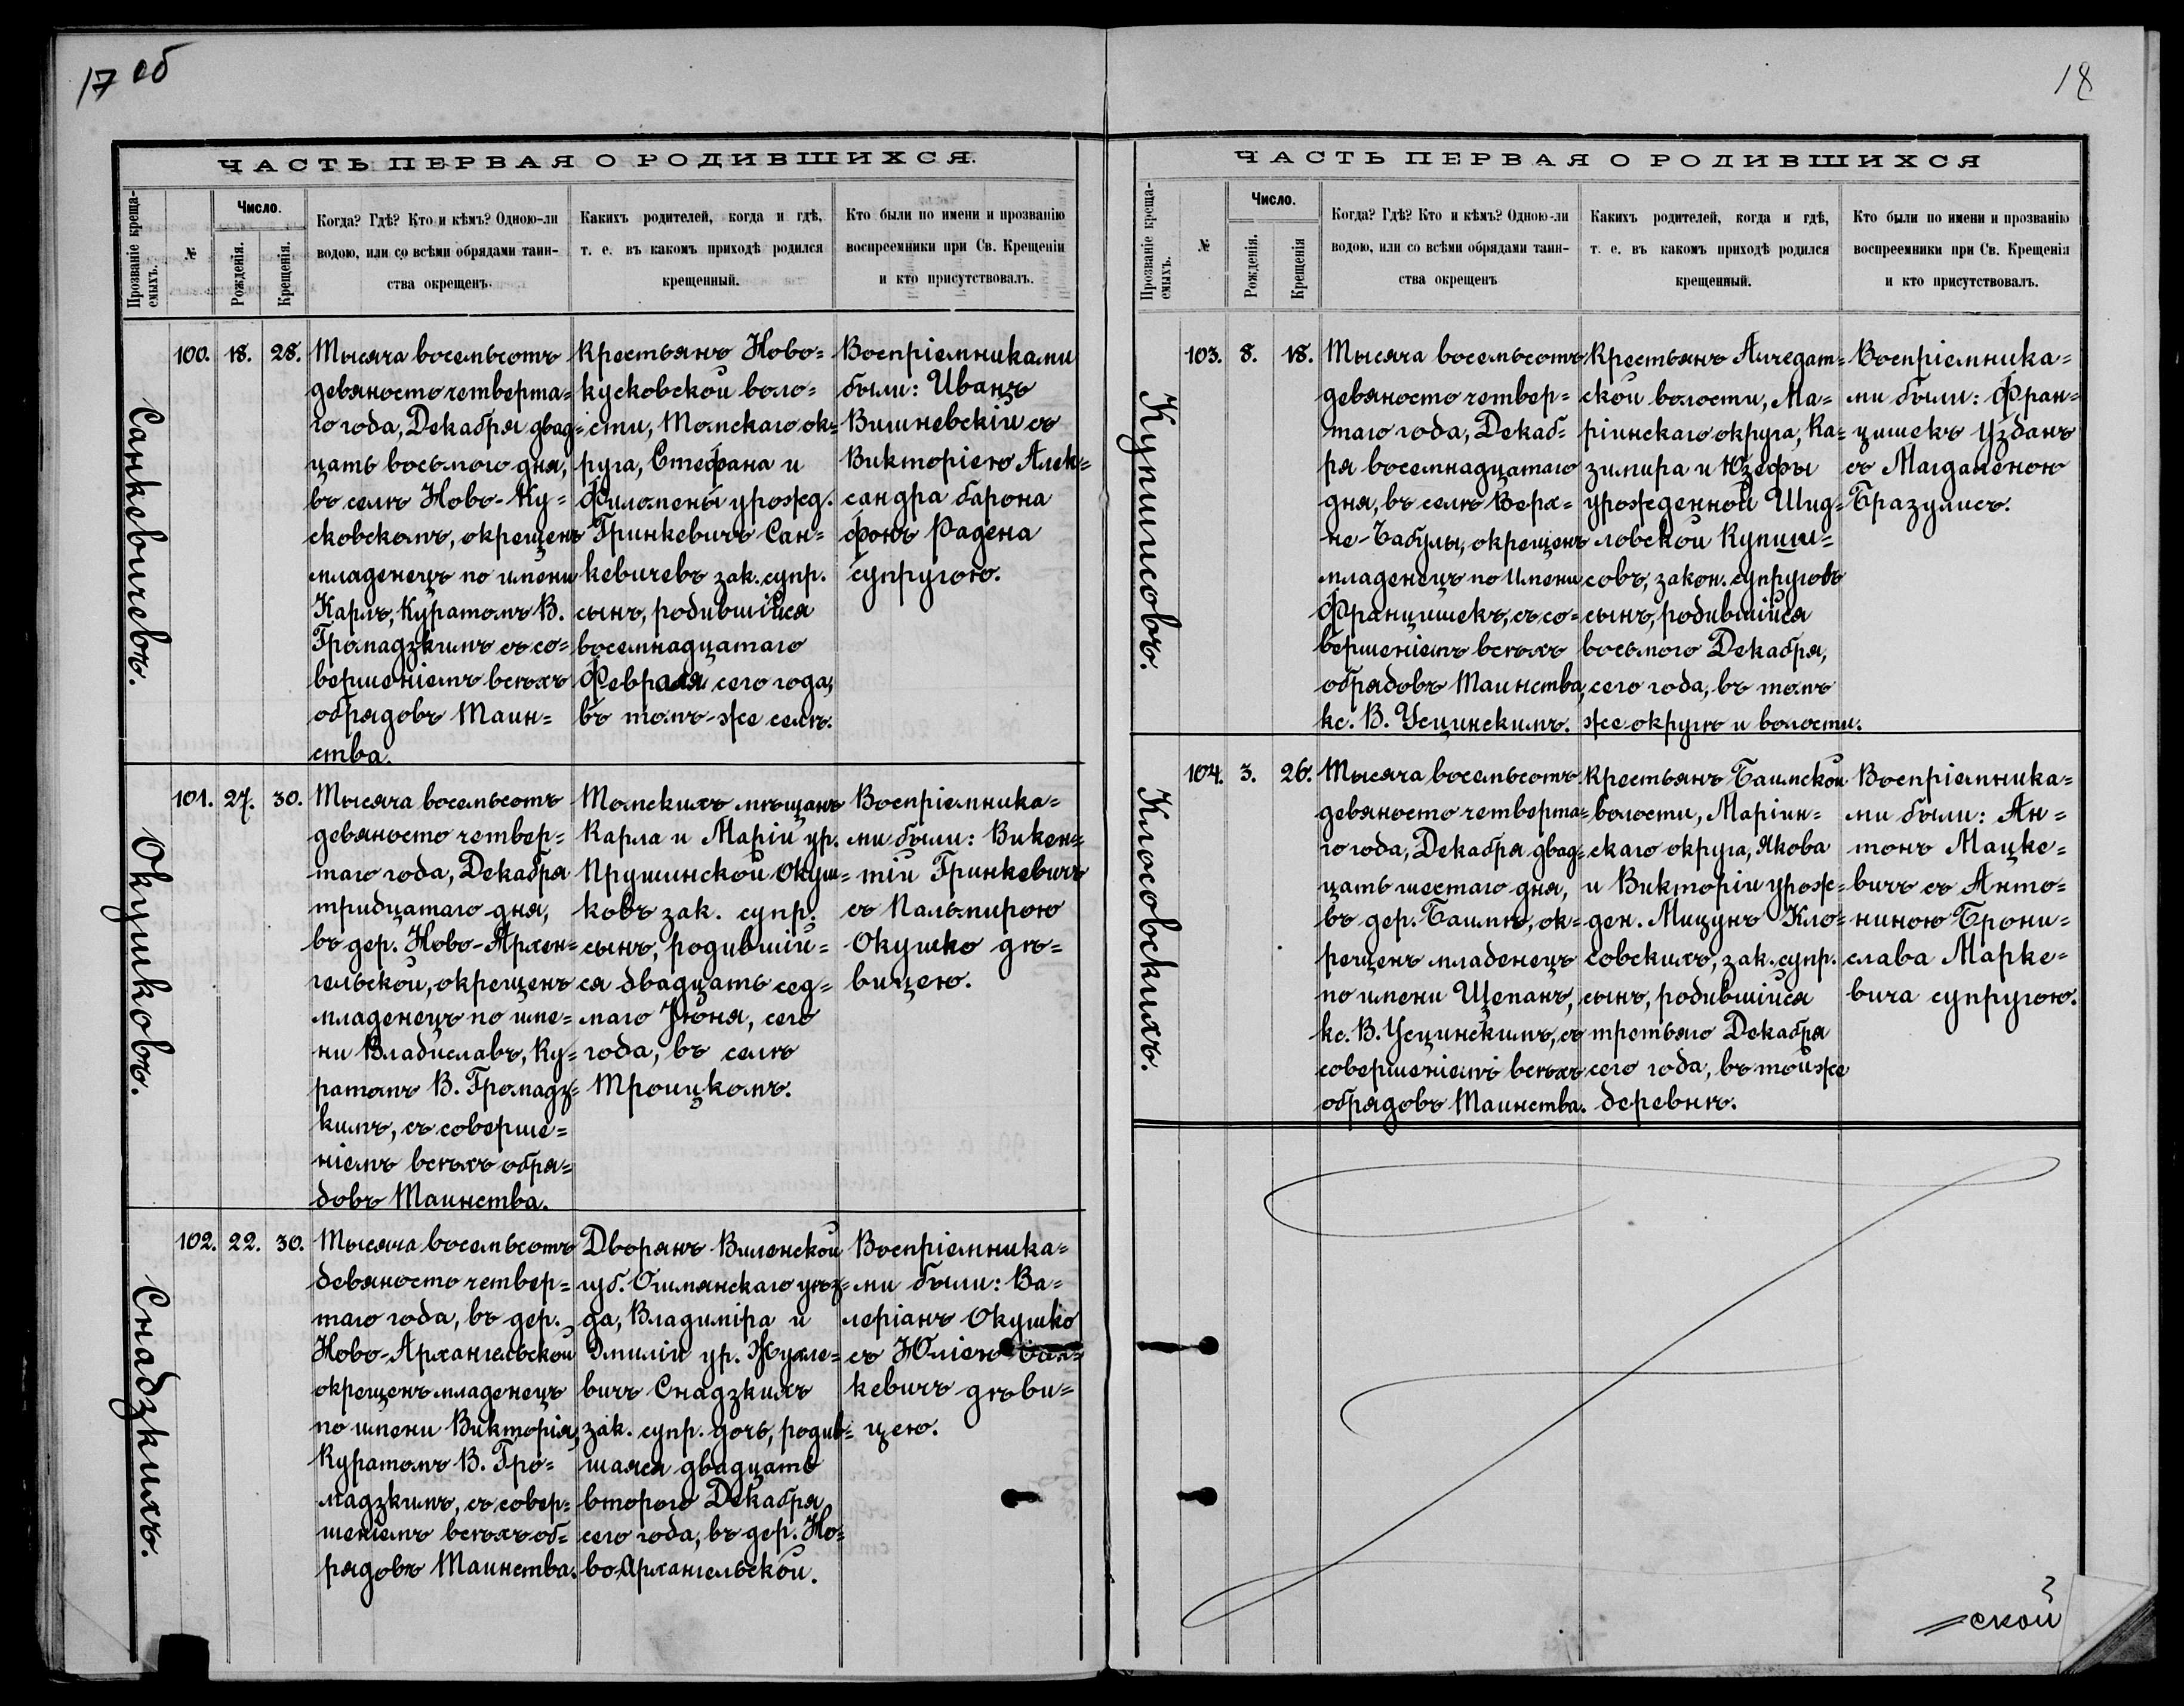 17 об
ЧАСТЬ ПЕРВАЯ О РОДИВШИХСЯ.
Прозваніе креща-
емыхъ.
№
Число.
Рожденія.
Крещенія.
Когда? Гдѣ? Кто и кѣмъ? Одною-ли
водою, или со всѣми обрядами таин-
ства окрещенъ.
Какихъ родителей, когда и гдѣ,
т. е. въ какомъ приходѣ родился
крещенный.
Кто были по имени и прозванію
воспреемники при Св. Крещеніи
и кто присутствовалъ.
Санкевичевъ.
100.
18.
28.
Тысяча восемьсотъ
девяносто четверта=
го года, Декабря двад=
цать восьмого дня,
въ селѣ Ново-Ку=
сковскомъ, окрещенъ
младенецъ по имени
Карлъ, Куратомъ В.
Громадзкимъ съ со=
вершеніемъ всѣхъ
обрядовъ Таин=
ства.
Крестьянъ Ново=
кусковской воло=
сти, Томскаго ок=
руга, Стефана и
Филомены урожд.
Гринкевичъ Сан=
кевичевъ зак. супр.
сынъ, родившійся
восемнадцатаго
Февраля сего года,
въ томъ-же селѣ.
Воспріемниками
были: Иванъ
Вишневскій съ
Викторіею Алек=
сандра барона
фонъ Радена
супругою.
Окушковъ.
101.
27.
30.
Тысяча восемьсотъ
девяносто четвер=
таго года, Декабря
тридцатаго дня,
въ дер. Ново-Архан=
гельской, окрещенъ
младенецъ по име=
ни Владиславъ, Ку=
ратомъ В. Громадз=
кимъ, съ соверше=
ніемъ всѣхъ обря=
довъ Таинства.
Томскихъ мѣщанъ
Карла и Маріи ур.
Прушинской Окуш=
ковъ зак. супр.
сынъ, родившій=
ся двадцать сед=
маго Іюня, сего
года, въ селѣ
Троицкомъ.
Воспріемника=
ми были: Викен=
тій Гринкевичъ
съ Пальмирою
Окушко дѣ=
вицею.
Снадзкихъ.
102.
22.
30.
Тысяча восемьсотъ
девяносто четвер=
таго года, въ дер.
Ново-Архангельской
окрещенъ младенецъ
по имени Викторія,
Куратомъ В. Гро=
мадзкимъ, съ совер=
шеніемъ всѣхъ об=
рядовъ Таинства.
Дворянъ Виленской
губ. Ошмянскаго уѣз=
да, Владиміра и
Эмиліи ур. Жухле=
вичъ Снадзкихъ
зак. супр. дочь, родив=
шаяся двадцать
второго Декабря
сего года, въ дер. Но=
во-Архангельской.
Воспріемника=
ми были: Ва=
леріанъ Окушко
съ Юліею
кевичъ дѣви=
цею.
18
ЧАСТЬ ПЕРВАЯ О РОДИВШИХСЯ
Прозваніе креща-
емыхъ.
№
Число.
Рожденія.
Крещенія
Когда? Гдѣ? Кто и кѣмъ? Одною-ли
водою, или со всѣми обрядами таин-
ства окрещенъ
Какихъ родителей, когда и гдѣ,
т. е. въ какомъ приходѣ родился
крещенный.
Кто были по имени и прозванію
воспреемники при Св. Крещенія
и кто присутствовалъ.
Купшисовъ.
103.
8.
18.
Тысяча восемьсотъ
девяносто четвер=
таго года, Декаб=
ря восемнадцатаго
дня, въ селѣ Верх=
не-Чабулы, окрещенъ
младенецъ по имени
Францишекъ, съ со=
вершеніемъ всѣхъ
обрядовъ Таинства,
кс. В. Усцинскимъ.
Крестьянъ Алчедат=
ской волости, Ма=
ріинскаго округа, Ка=
зимира и Юзефы
урожденной Шид=
ловской Купши=
совъ, закон. супруговъ
сынъ, родившійся
восьмого Декабря,
сего года, въ томъ
же округѣ и волости.
Воспріемника=
ми были: Фран=
цишекъ Узданъ
съ Магдаленою
Бразулисъ.
Клосовскихъ.
104.
3.
26.
Тысяча восемьсотъ
девяносто четверта=
го года, Декабря двад=
цать шестаго дня,
въ дер. Баимъ, ок=
рещенъ младенецъ
по имени Щепанъ,
кс. В. Усцинскимъ, съ
совершеніемъ всѣхъ
обрядовъ Таинства.
Крестьянъ Баимской
волости, Маріин=
скаго округа, Якова
и Викторіи урож=
ден. Мицунъ Кло=
совскихъ, зак. супр.
сынъ, родившійся
третьяго Декабря
сего года, въ той же
деревнѣ.
Воспріемника=
ми были: Ан=
тонъ Мацке=
вичъ съ Анто=
ниною Брони=
слава Марке=
вича супругою.
=ской